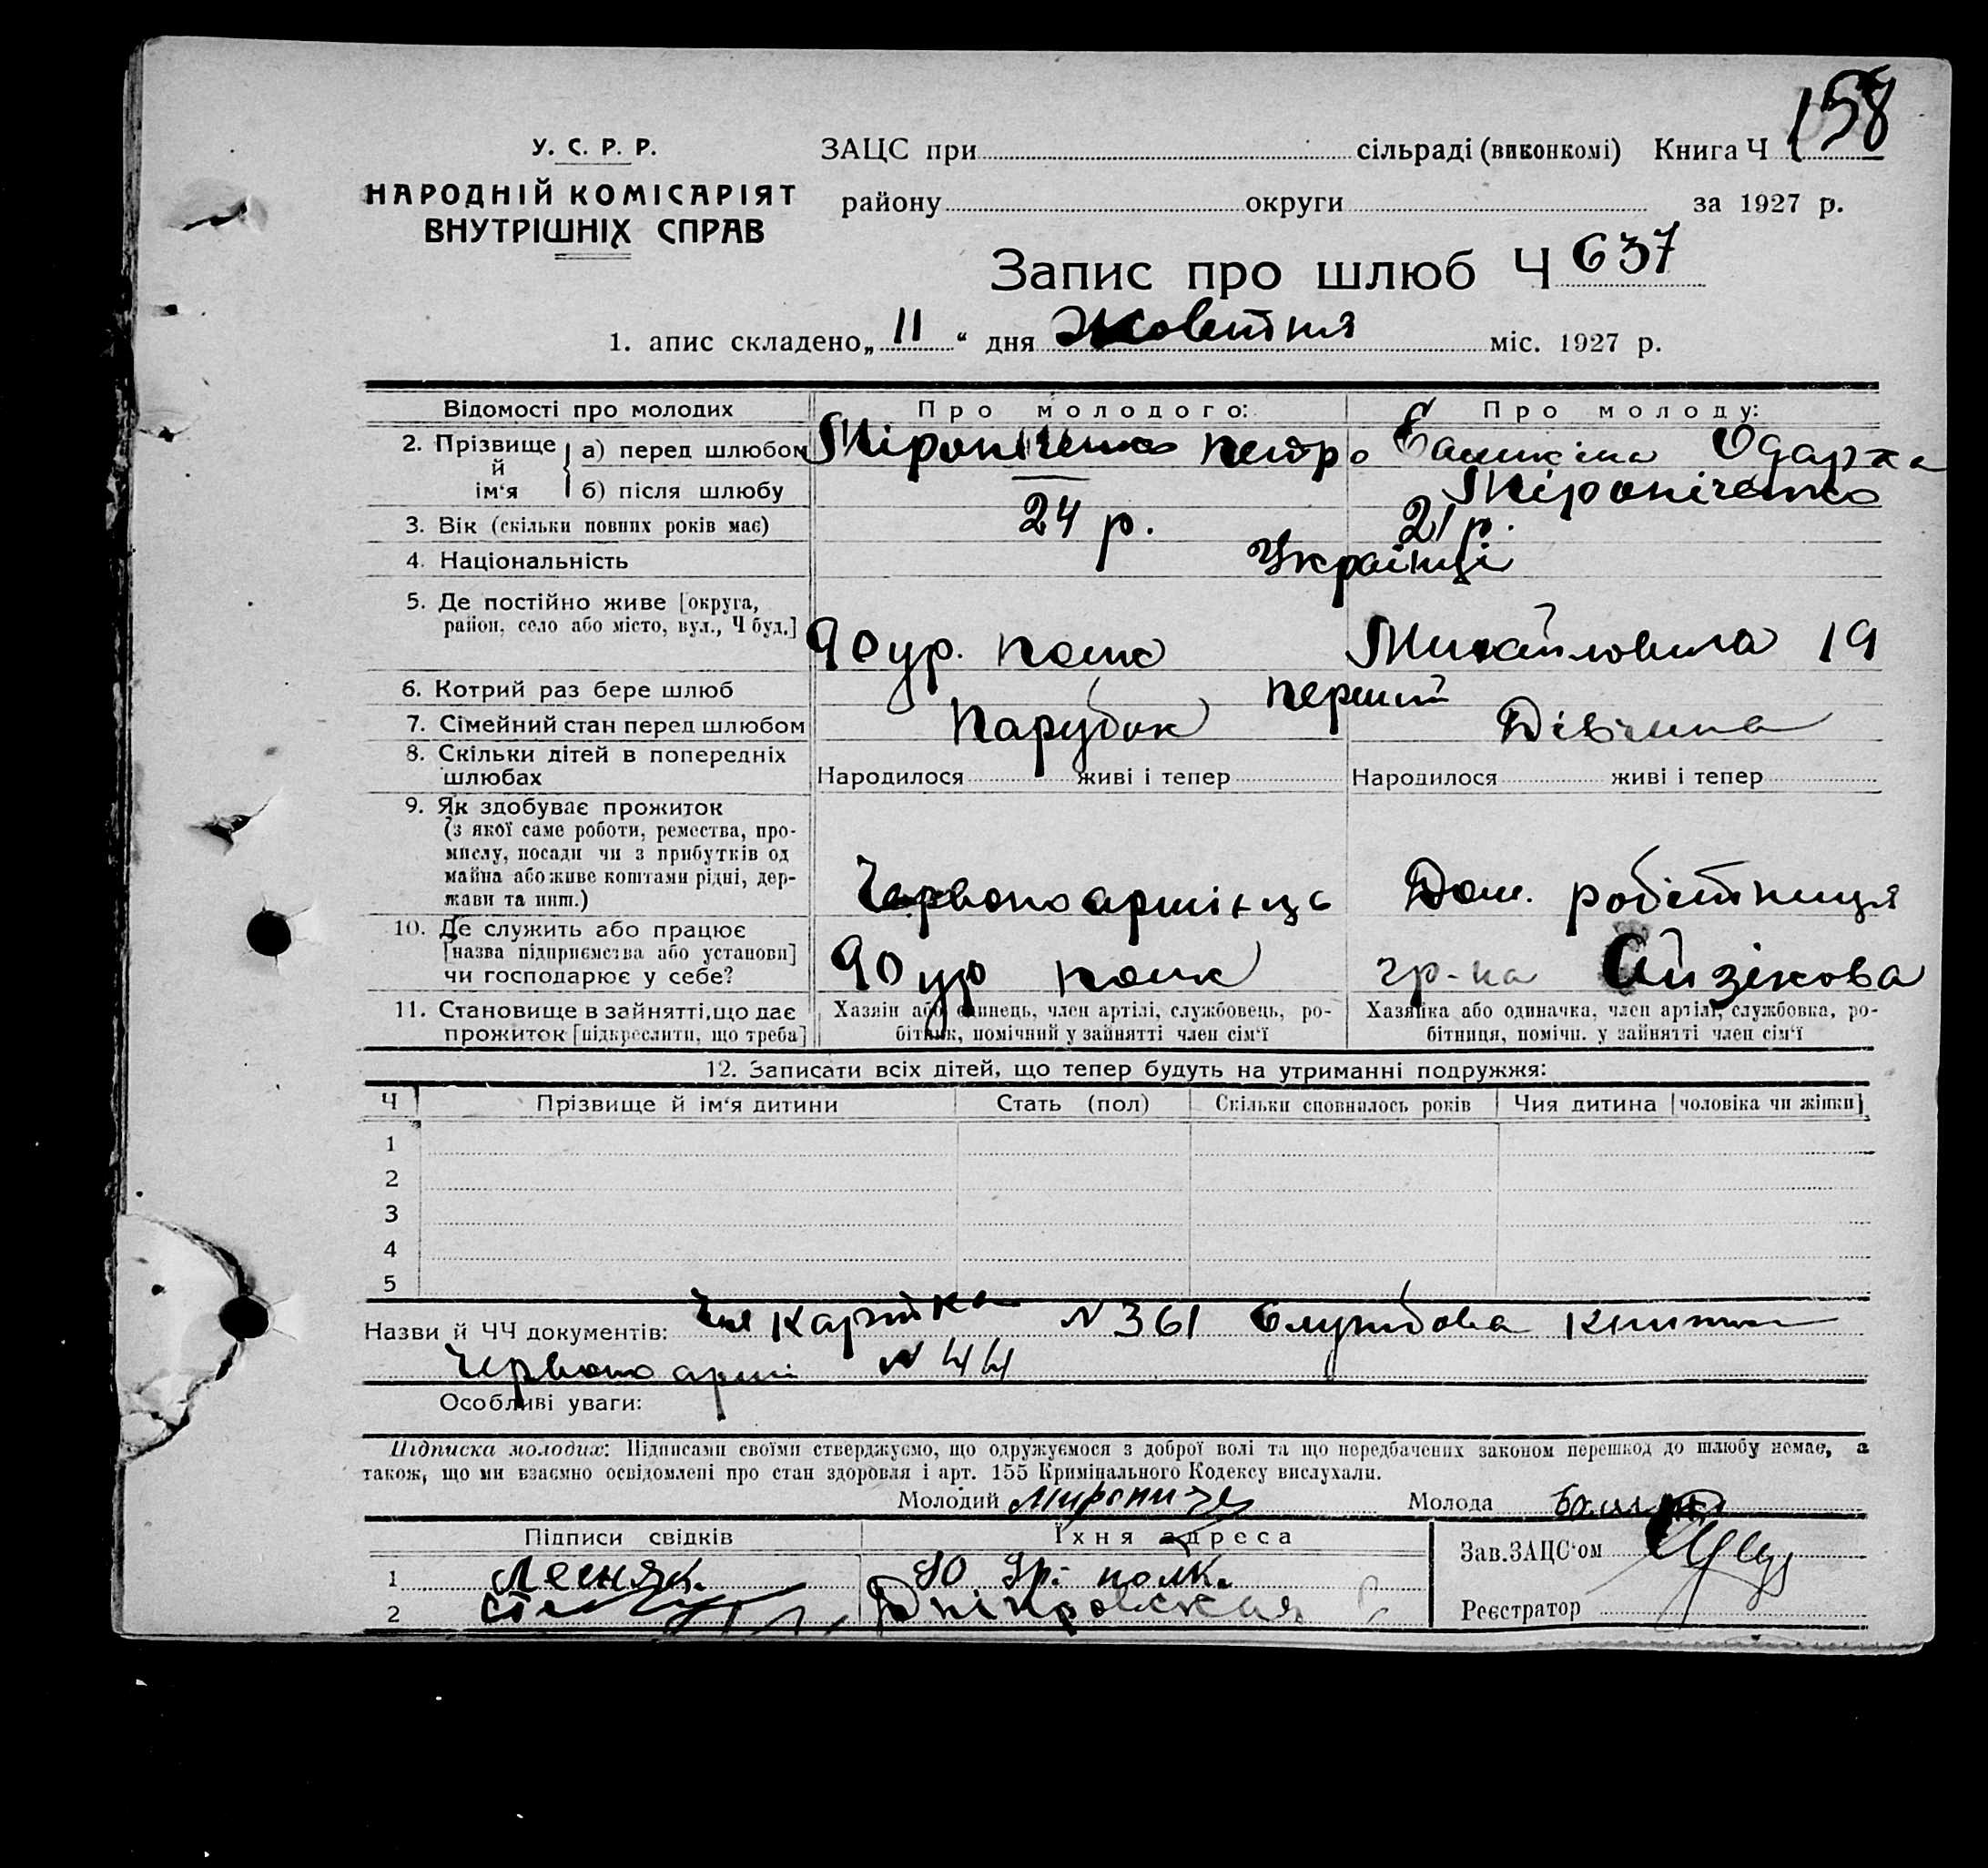 158
У. С. Р. Р.
НАРОДНІЙ КОМІСАРІЯТ
ВНУТРІШНІХ СПРАВ
ЗАЦС при сільраді (виконкомі) Книга Ч
району округи за 1927 р.
Запис про шлюб Ч 637
1. апис складено „11“ дня Жовтня міс. 1927 р.
Відомості про молодих Про молодого: Про молоду:
2. Прізвище й ім‘я а) перед шлюбом Міроніченко Петро Одарка
б) після шлюбу Міроніченко
3. Вік (скільки повних років має) 24 р. 21 р.
4. Національність Українці
5. Де постійно живе [округа,
район, село або місто, вул., Ч буд.] 90 ур. полк 19
6. Котрий раз бере шлюб перший
7. Сімейний стан перед шлюбом Парубок Дівчина
8. Скільки дітей в попередніх
шлюбах Народилося живі і тепер Народилося живі і тепер
9. Як здобуває прожиток
(з якої саме роботи, ремества, про-
мислу, посади чи з прибутків од
майна або живе коштами рідні, дер-
жави та инш.) Червоноармієць Дом. робітниця
10. Де служить або працює
[назва підприємства або установи]
чи господарює у себе? 90 ур полк гр-на Айзікова
11. Становище в зайнятті, що дає
прожиток [підкреслити, що треба]
Хазяїн або одинець, член артілі, службовець, ро-
бітник, помічний у зайнятті член сім‘ї
Хазяйка або одиначка, член артілі, службовка, ро-
бітниця, помічн. у зайнятті член сім‘ї
12. Записати всіх дітей, що тепер будуть на утриманні подружжя:
Ч Прізвище й ім‘я дитини Стать (пол) Скільки сповнилось років Чия дитина [чоловіка чи жінки]
1
2
3
4
5
Назви й ЧЧ документів: картка N 361 Службова книжка
Червоноармі N 44
Особливі уваги:
Підписка молодих: Підписами своїми стверджуємо, що одружуємося з доброї волі та що передбачених законом перешкод до шлюбу немає, а
також, що ми взаємно освідомлені про стан здоровля і арт. 155 Кримінального Кодексу вислухали.
Молодий Молода
Підписи свідків Їхня адреса
1 Лесняк. 90 ур. полк.
2 Дніпровская
Зав.ЗАЦС‘ом
Реєстратор